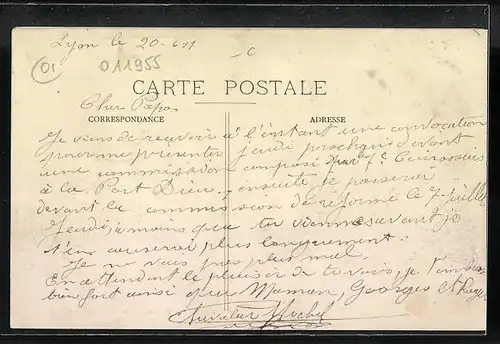 Lyon le 20-6-11
01
011955
CARTE POSTALE
CORRESPONDANCE
ADRESSE
Cher Papa
Je viens de recevoir à l'instant une convocation
pour me présenter jeudi prochain devant
une commission composé 7e Cuirassiers
à la Part Dieu, ensuite je passerai
devant la commission de réforme le 7 juillet
Jeudi, à moins que tu viennes avant je
t'en causerai plus longuement.
Je ne vais pas plus mal.
En attendant le plaisir de te voir, je t'embrasse
bien fort ainsi que Maman, Georges et